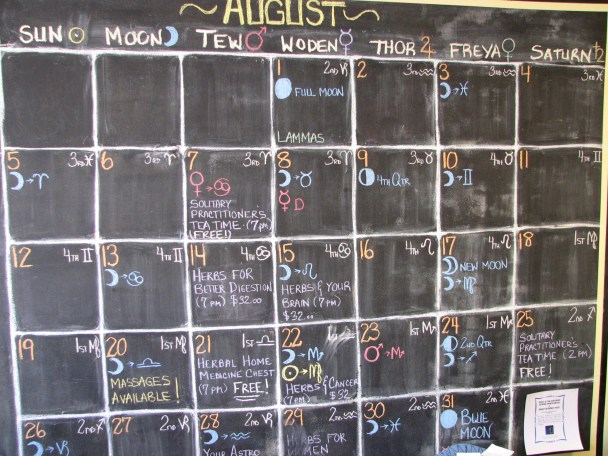 ~AUGUST~
SUN☉ MOON☽ TEW♂ WODEN☿ THOR♃ FREYA♀ SATURN♄
1 2ND ♑
FULL MOON
LAMMAS
2 3RD ♒
3 3RD ♒
☽→♓
4 3RD ♓
5 3RD ♓
☽→♈
6 3RD ♈
7 3RD ♈
♀→♋
SOLITARY
PRACTITIONERS
TEA TIME (7PM)
(FREE!)
8 3RD ♈
☽→♉
☿ D
9 3RD ♉
4TH QTR
10 3RD ♉
☽→♊
11 4TH ♊
12 4TH ♊
13 4TH ♊
☽→♋
14 4TH ♋
HERBS FOR
BETTER DIGESTION
(7PM) $32.00
15 4TH ♋
☽→♌
HERBS & YOUR
BRAIN (7PM)
$32.00
16 4TH ♌
17 4TH ♌
NEW MOON
☽→♍
18 1ST ♍
19 1ST ♍
20 1ST ♍
☽→♎
MASSAGES
AVAILABLE!
21 1ST ♎
HERBAL HOME
MEDICINE CHEST
(7PM) FREE!
22 1ST ♎
☽→♏
☉→♍
HERBS & CANCER
(7PM) $32
23 1ST ♏
♂→♏
24 1ST ♏
2ND QTR
☽→♐
25 2ND ♐
SOLITARY
PRACTITIONERS
TEA TIME (2PM)
FREE!
26 2ND ♐
☽→♑
27 2ND ♑
28 2ND ♑
☽→♒
YOUR ASTRO
29 2ND ♒
HERBS FOR
30 2ND ♒
☽→♓
31
BLUE
MOON